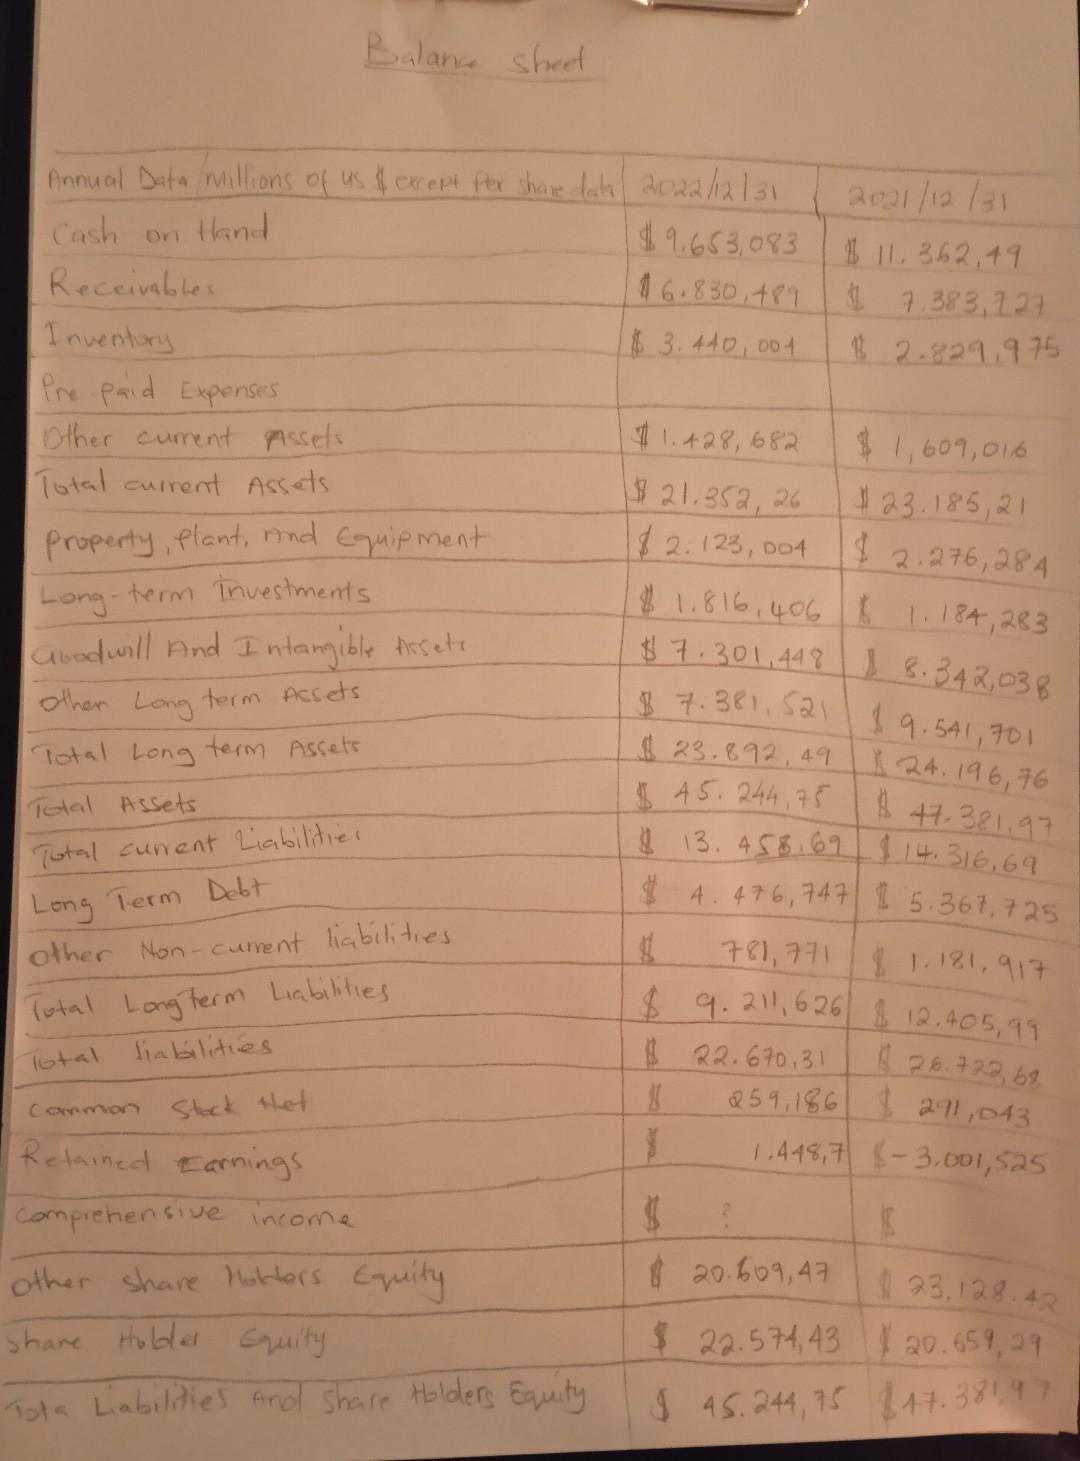 Balance sheet
Annual Data/millions of us $ except per share data 2022/12/31 2021/12/31
Cash on Hand $ 9.653,083 $ 11.362,49
Receivables $ 6.830,489 $ 7.383,727
Inventory $ 3.440,004 $ 2.829,975
Pre paid Expenses
Other current Assets $ 1.428,682 $ 1,609,016
Total current Assets $ 21.352,26 $ 23.185,21
property, plant, And Equipment $ 2.123,004 $ 2.276,284
Long-term Investments $ 1.816,406 $ 1.184,283
Goodwill And Intangible Assets $ 7.301,448 $ 8.342,038
Other Long term Assets $ 7.381,521 $ 9.541,701
Total Long term Assets $ 23.892,49 $ 24.196,76
Total Assets $ 45.244,75 $ 47.381,97
Total current Liabilities $ 13.458,69 $ 14.316,69
Long Term Debt $ 4.476,747 $ 5.367,725
Other Non-current liabilities $ 781,771 $ 1.181,917
Total Long Term Liabilities $ 9.211,626 $ 12.405,99
Total liabilities $ 22.670,31 $ 26.722,68
Common Stock Net $ 259,186 $ 291,043
Retained Earnings $ 1.448,7 $-3.001,525
Comprehensive income $ ? $
Other Share Holders Equity $ 20.609,47 $ 23.128.42
Share Holder Equity $ 22.574,43 $ 20.659,29
Tota Liabilities And Share Holders Equity $ 45.244,75 $ 47.381,97